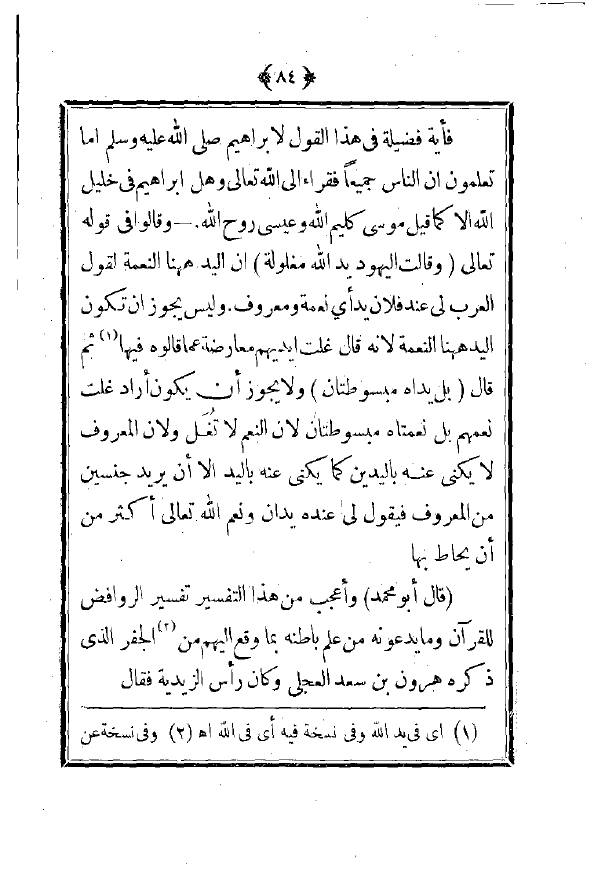 ﴿ ٨٤ ﴾
فأية فضيلة فى هذا القول لابراهيم صلى الله عليه وسلم اما
تعلمون ان الناس جميعاً فقراء الى الله تعالى وهل ابراهيم فى خليل
الله الا كما قيل موسى كليم الله وعيسى روح الله. — وقالوا فى قوله
تعالى ( وقالت اليهود يد الله مغلولة ) ان اليد ههنا النعمة لقول
العرب لى عند فلان يد أي نعمة ومعروف. وليس يجوز ان تكون
اليد ههنا النعمة لانه قال غلت ايديهم معارضة عما قالوه فيها (١) ثم
قال ( بل يداه مبسوطتان ) ولا يجوز أن يكون أراد غلت
نعمهم بل نعمتاه مبسوطتان لان النعم لا تُغَل ولان المعروف
لا يكنى عنه باليدين كما يكنى عنه باليد الا أن يريد جنسين
من المعروف فيقول لى عنده يدان ونعم الله تعالى أكثر من
أن يحاط بها
(قال أبو محمد) وأعجب من هذا التفسير تفسير الروافض
للقرآن وما يدعونه من علم باطنه بما وقع اليهم من (٢) الجفر الذى
ذكره هرون بن سعد العجلى وكان رأس الزيدية فقال
(١) اى فى يد الله وفى نسخة فيه أى فى الله اه (٢) وفى نسخة عن